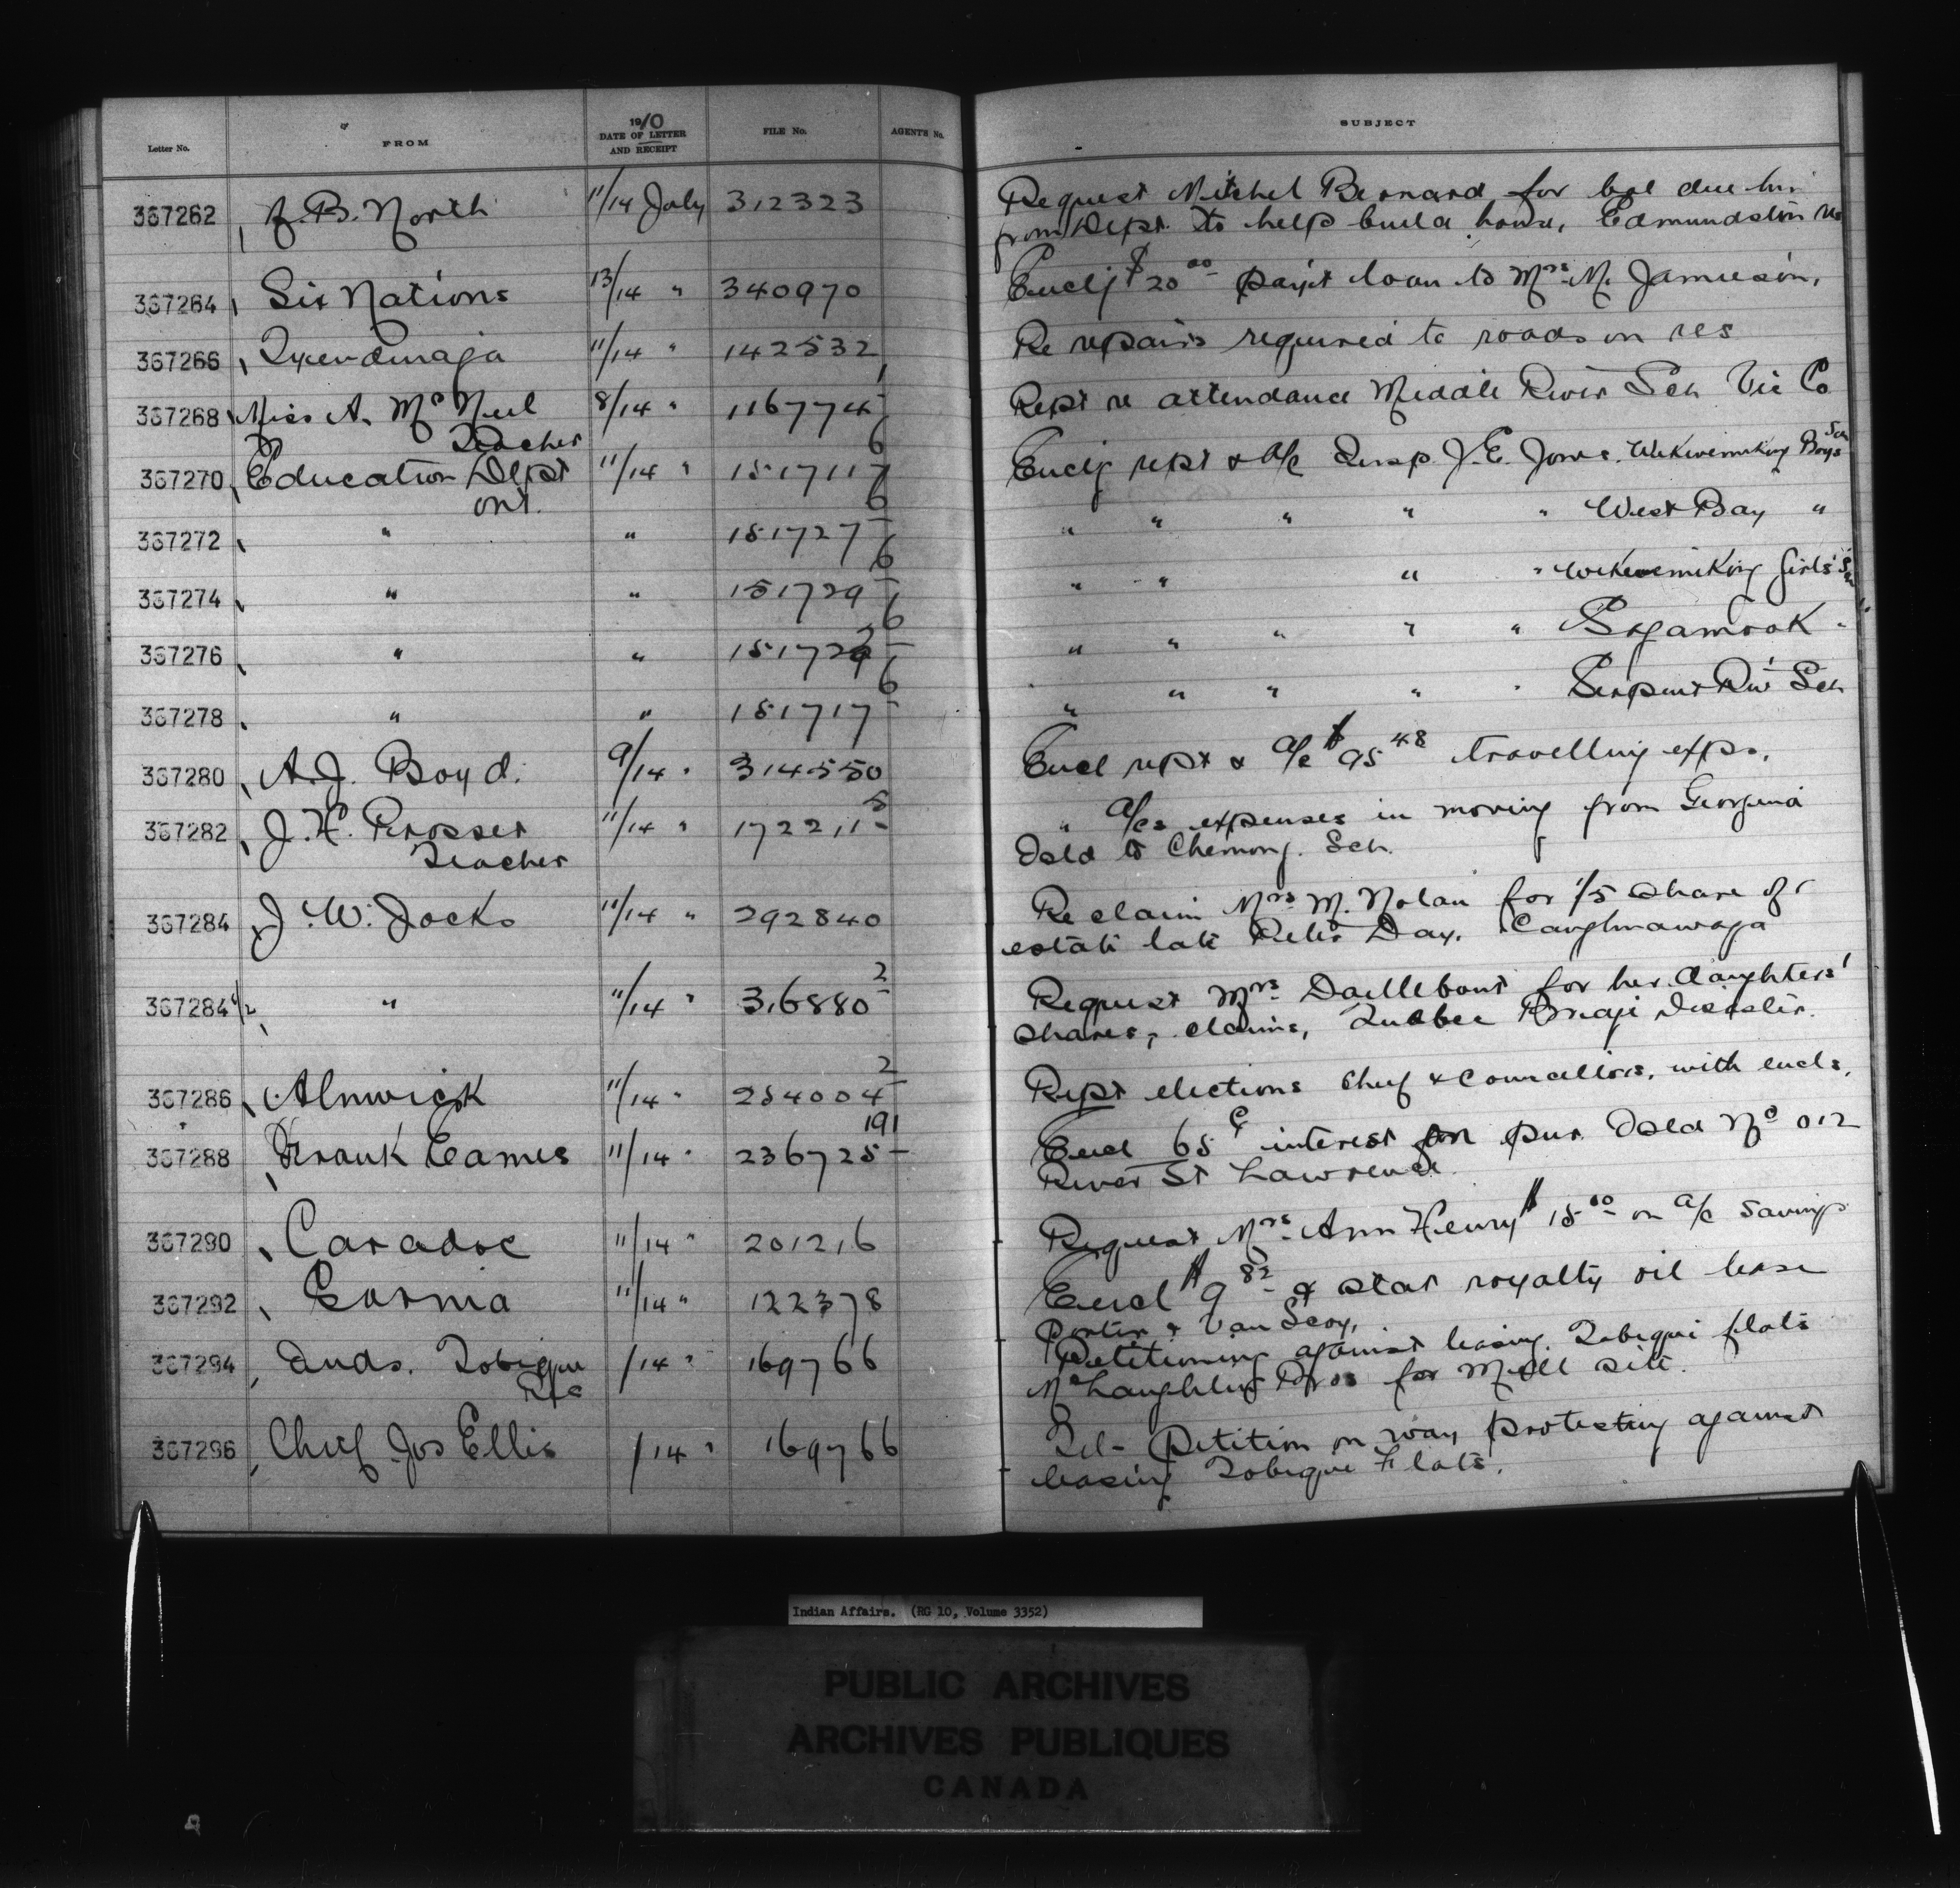 Letter No. FROM 1910 DATE OF LETTER AND RECEIPT FILE No. AGENT'S No. SUBJECT
367262 B. North 11/14 July 312323 Request Mitchel Bernard for bal due him
from Dept. to help build house, Edmundston
367264 Six Nations 13/14 " 340970 Enclg $20.00 pay't loan to Mrs. M. Jamieson,
367266 Tyendinaga 11/14 " 142532 Re repairs required to roads on res
367268 Miss A. McNeil 8/14 " 116774 1 Rept re attendance Middle River Sch Vic Co
Teacher
367270 Education Dept 11/14 " 151711 7/6 Enclg rept & a/c Insp. J. E. Jones. Wikwemikong Boys Sch
Ont.
367272 " " 151727 6 " " " " " West Bay "
367274 " " 151729 6 " " " " Wikwemikong Girls' Sch
367276 " " 15172 6 " " " " " Sagamook "
367278 " " 151717 6 " " " " " Serpent Riv Sch
367280 A. J. Boyd. 9/14 " 314550 Encl rept & a/c $95.48 travelling exps.
367282 J. H. Prosser 11/14 " 172211 5 " a/cs expenses in moving from Georgina
Teacher Isld to Chemong. Sch.
367284 J. W. Jocks 11/14 " 292840 Re claim Mrs. M. Nolan for 1/5 share of
estate late Peter Day. Caughnawaga
367284 1/2 " 11/14 " 316880 2 Request Mrs. Daillebout for her daughters'
shares, claims, Quebec Bridge Disaster.
367286 Alnwick 11/14 " 254004 2 Rept elections Chief & Councillors, with encls.
367288 Frank Eames 11/14 " 236725 191 Encl 65c interest for pur. Isld No 012
River St Lawrence.
367290 Caradoc 11/14 " 201216 Request Mrs. Ann Henry $15.00 on a/c Savings
367292 Sarnia 11/14 " 122378 Encl $9.82 & stat royalty oil lease
Porter & Van Scoy,
367294 Inds. Tobique /14 " 169766 Petitioning against leasing Tobique flats
Res McLaughlin Bros for Mill site.
367296 Chief Jos Ellis /14 " 169766 Tel- Petition on way protesting against
leasing Tobique Flats.
Indian Affairs. (RG 10, Volume 3352)
PUBLIC ARCHIVES
ARCHIVES PUBLIQUES
CANADA